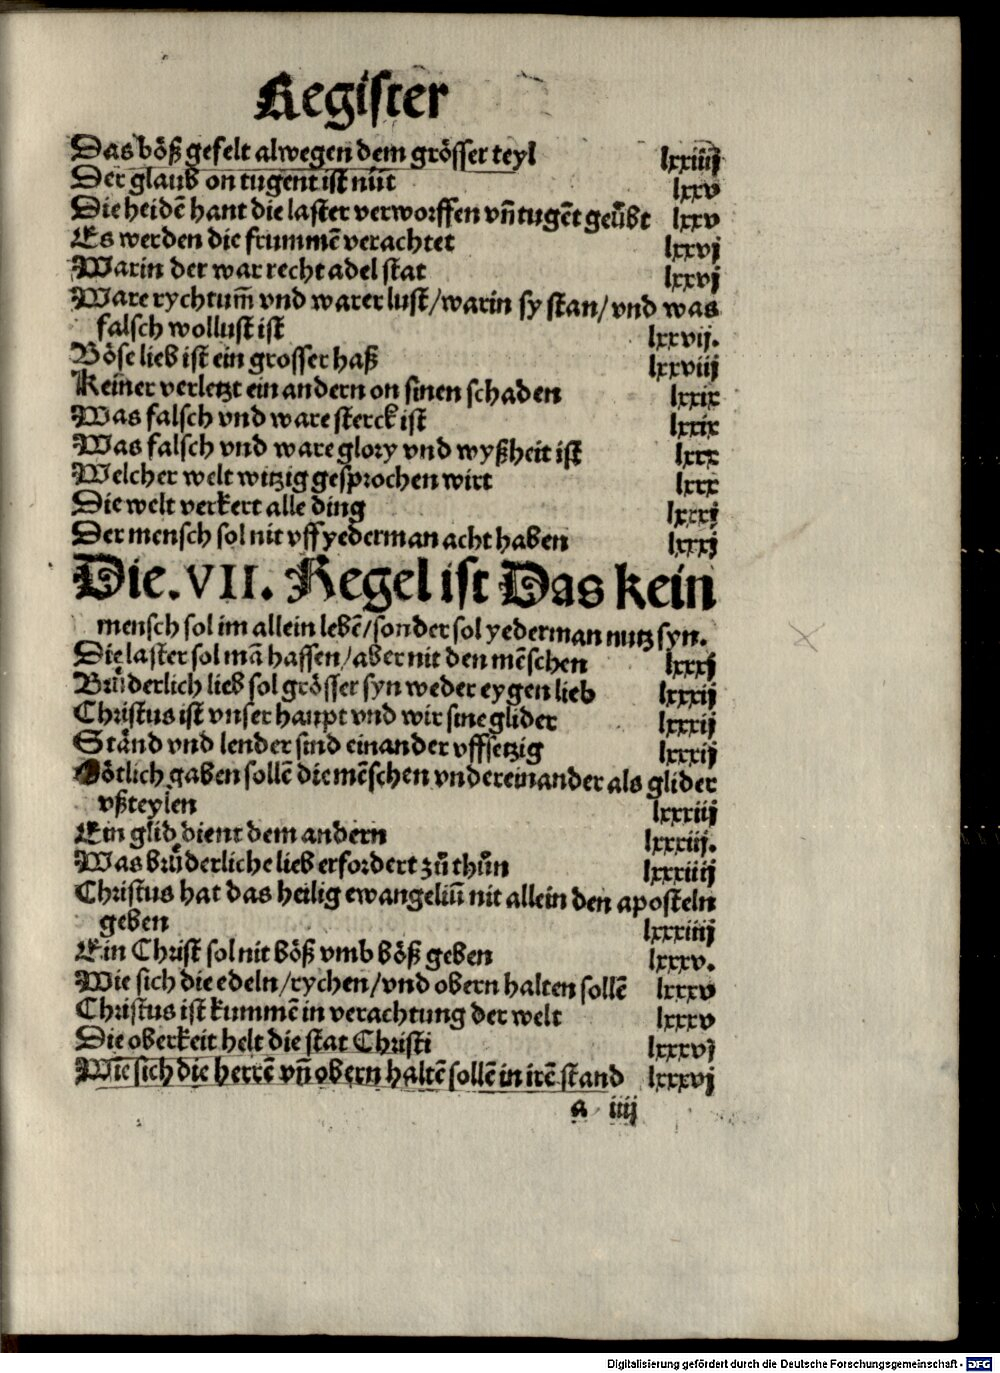 Register
Das böß gefelt alwegen dem grösser teyl lxxiiij
Der glaub on tugent ist nüt lxxv
Die heidē hant die laster verworffen vñ tugēt geübt lxxv
Es werden die frummē verachtet lxxvj
Warin der war recht adel stat lxxvj
Ware rychtum̄ vnd warer lust/warin sy stan/vnd was
falsch wollust ist lxxvij.
Böse lieb ist ein grosser haß lxxviij
Keiner verletzt ein andern on sinen schaden lxxix
Was falsch vnd ware sterck ist lxxix
Was falsch vnd ware glory vnd wyßheit ist lxxx
Welcher welt witzig gesprochen wirt lxxx
Die welt verkert alle ding lxxxj
Der mensch sol nit vff yederman acht haben lxxxj
Die.VII. Regel ist Das kein
mensch sol im allein lebē/sonder sol yederman nutz syn.
Die laster sol mā hassen/aber nit den mēschen lxxxj
Brůderlich lieb sol grösser syn weder eygen lieb lxxxij
Christus ist vnser haupt vnd wir sine glider lxxxij
Ständ vnd lender sind einander vffsetzig lxxxij
Götlich gaben sollē die mēschen vndereinander als glider
vßteylen lxxxiij
Ein glid dient dem andern lxxxiij.
Was brůderliche lieb erfordert zů thůn lxxxiiij
Christus hat das heilig ewangeliū nit allein den aposteln
geben lxxxiiij
Ein Christ sol nit böß vmb böß geben lxxxv.
Wie sich die edeln/rychen/vnd obern halten sollē lxxxv
Christus ist kummē in verachtung der welt lxxxv
Die oberkeit helt die stat Christi lxxxvj
Wie sich die herrē vñ obern haltē sollē in irē stand lxxxvj
a iiij
Digitalisierung gefördert durch die Deutsche Forschungsgemeinschaft - DFG